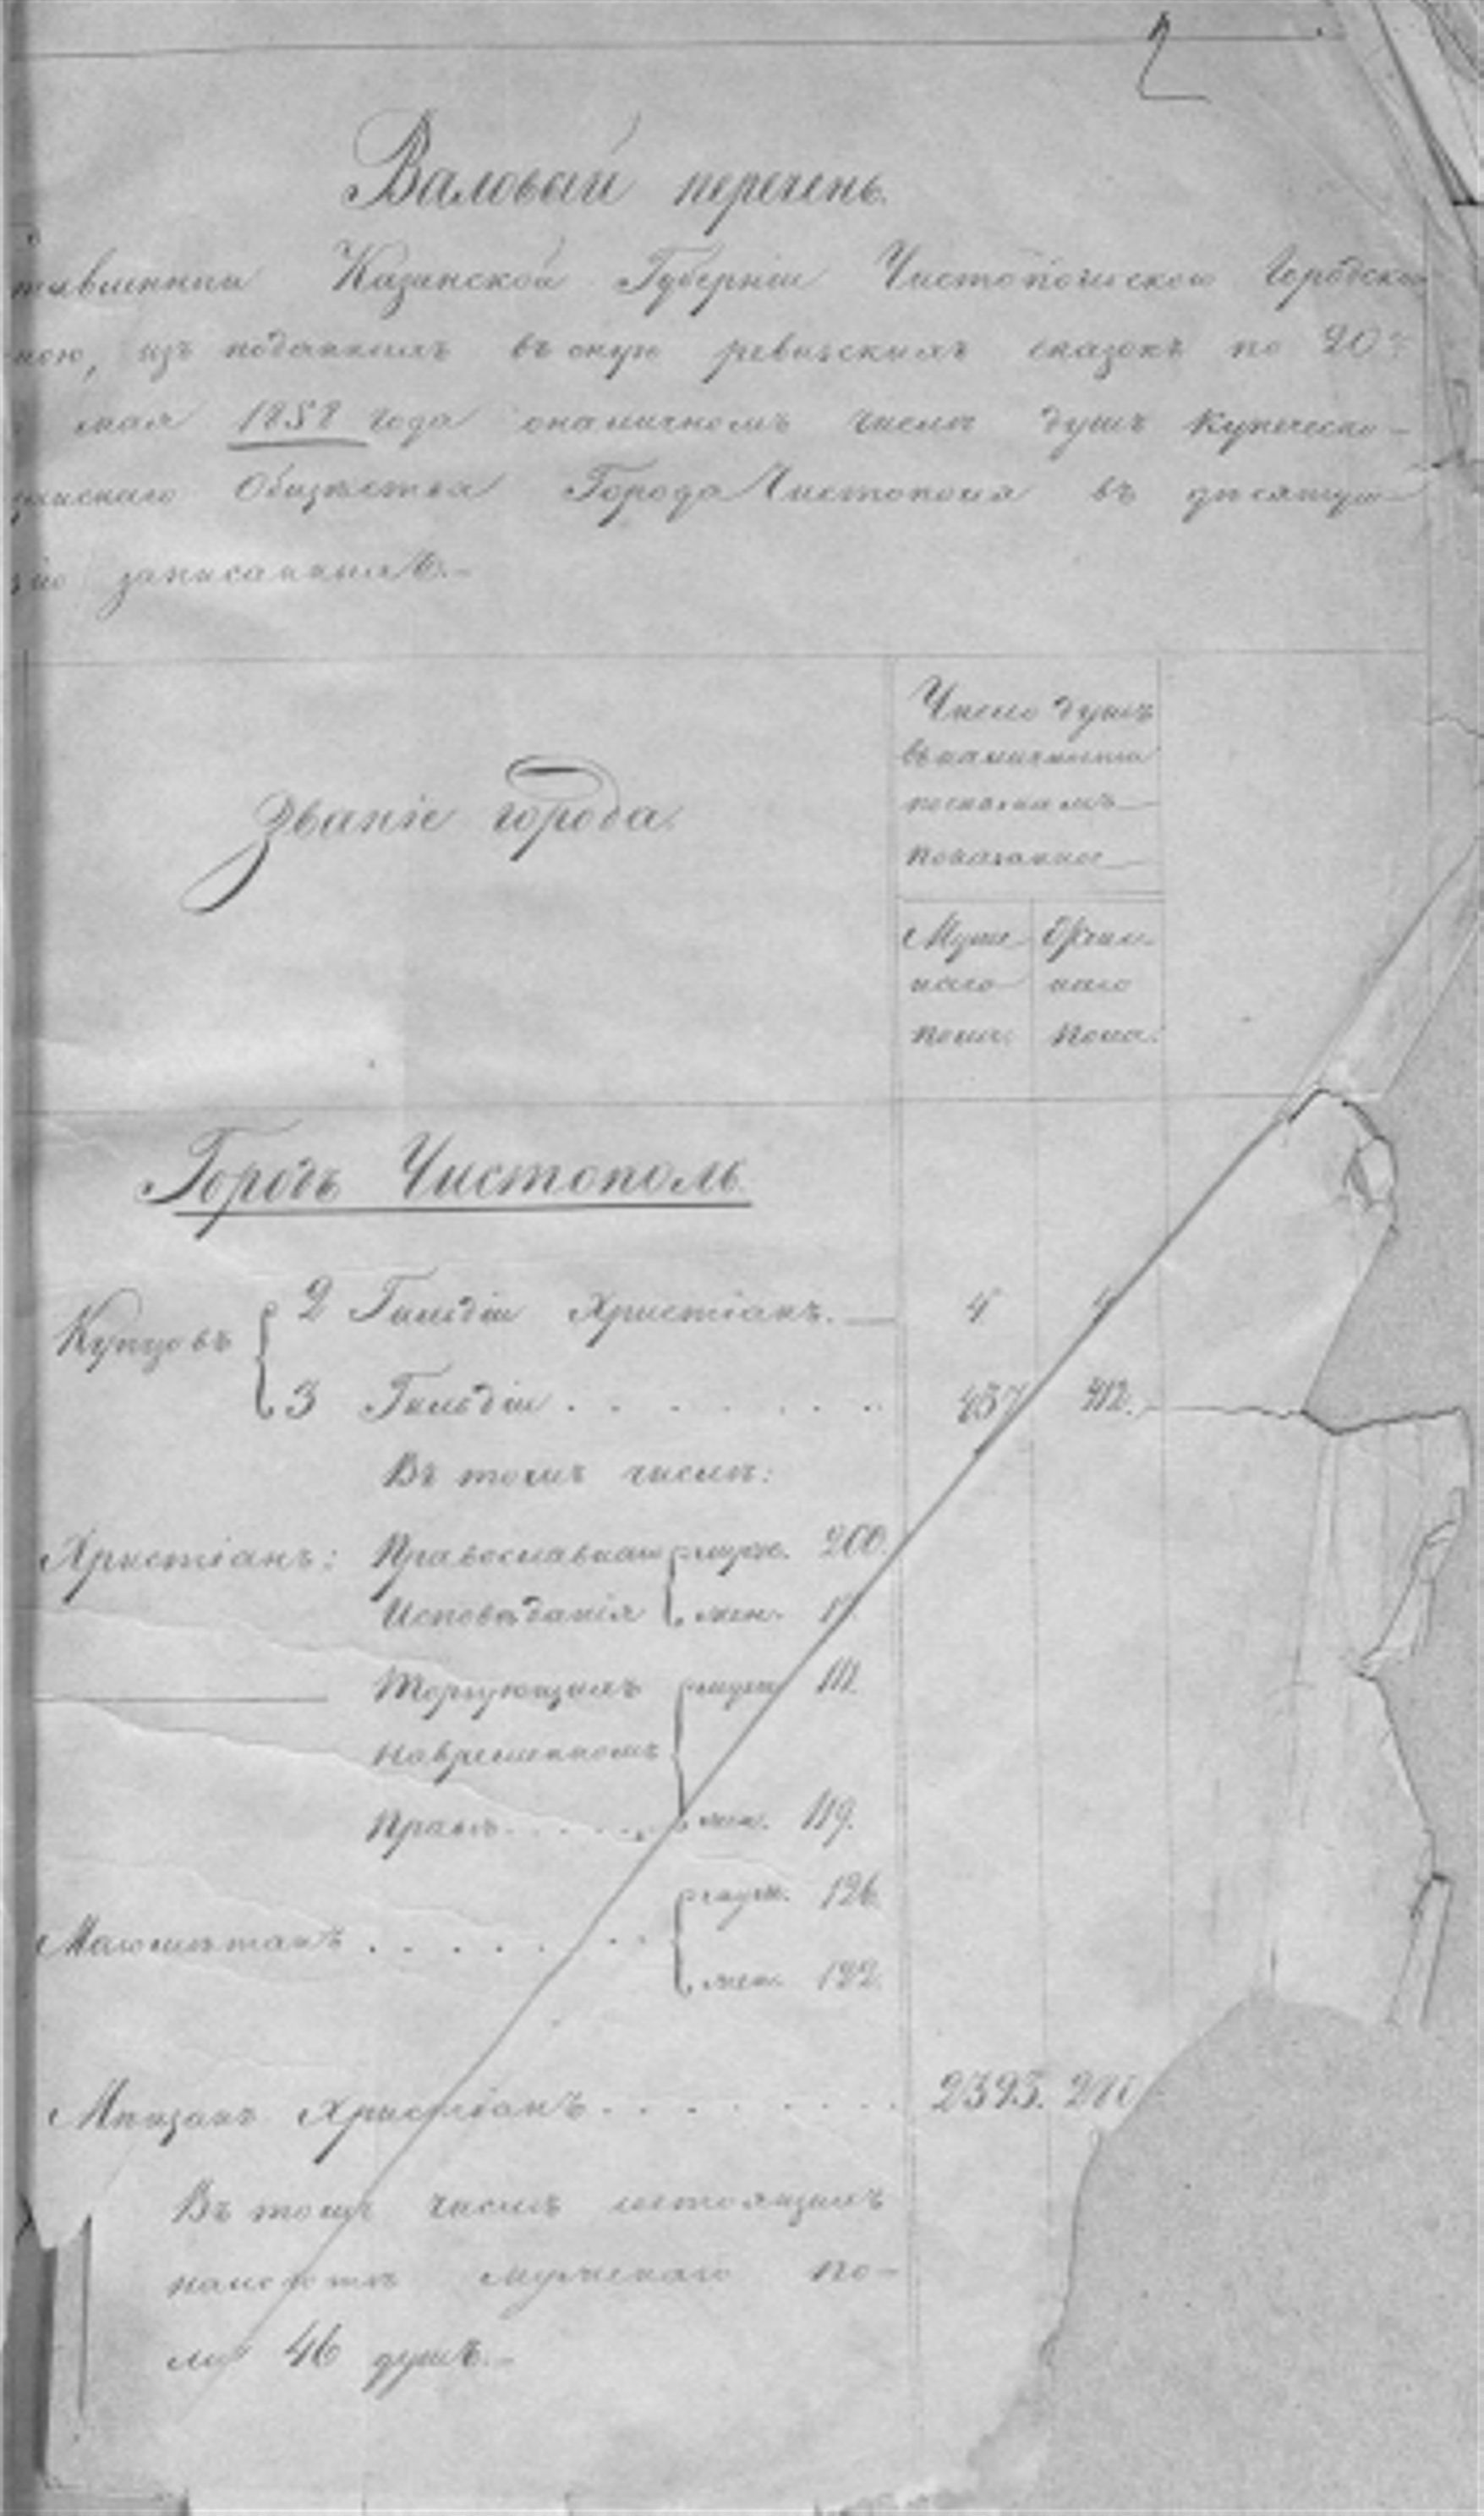 2
Валовый перечень.
Казанской Губерніи Чистопольскою Городско
ною, изъ поданныхъ въ оную ревизскихъ сказокъ по 20е
мая 1858 года оналичномъ числѣ душъ Купеческо-
щанскаго Общества Города Чистополя въ десятую
зію записанныхъ.-
Званіе города.
Число душъ
въ наличности
по сказкамъ
показанное
Муже- Женс-
наго наго
пола: пола:
Городъ Чистополь
Купцовъ
2 Гильдіи Христіанъ. 4
3 Гильдіи . . . . . . . 437 412.
Въ томъ числѣ:
Христіанъ: Православнаго муж. 200.
Исповѣданія жен.
Торгующихъ муж. 111.
на временномъ
Правѣ . . . . . жен. 119.
Магометанъ . . . . . . . муж. 126.
жен. 122.
Мѣщанъ Христіанъ . . . . . . . . 2393.
Въ томъ числѣ состоящихъ
мужескаго по-
ла 46 душъ.-